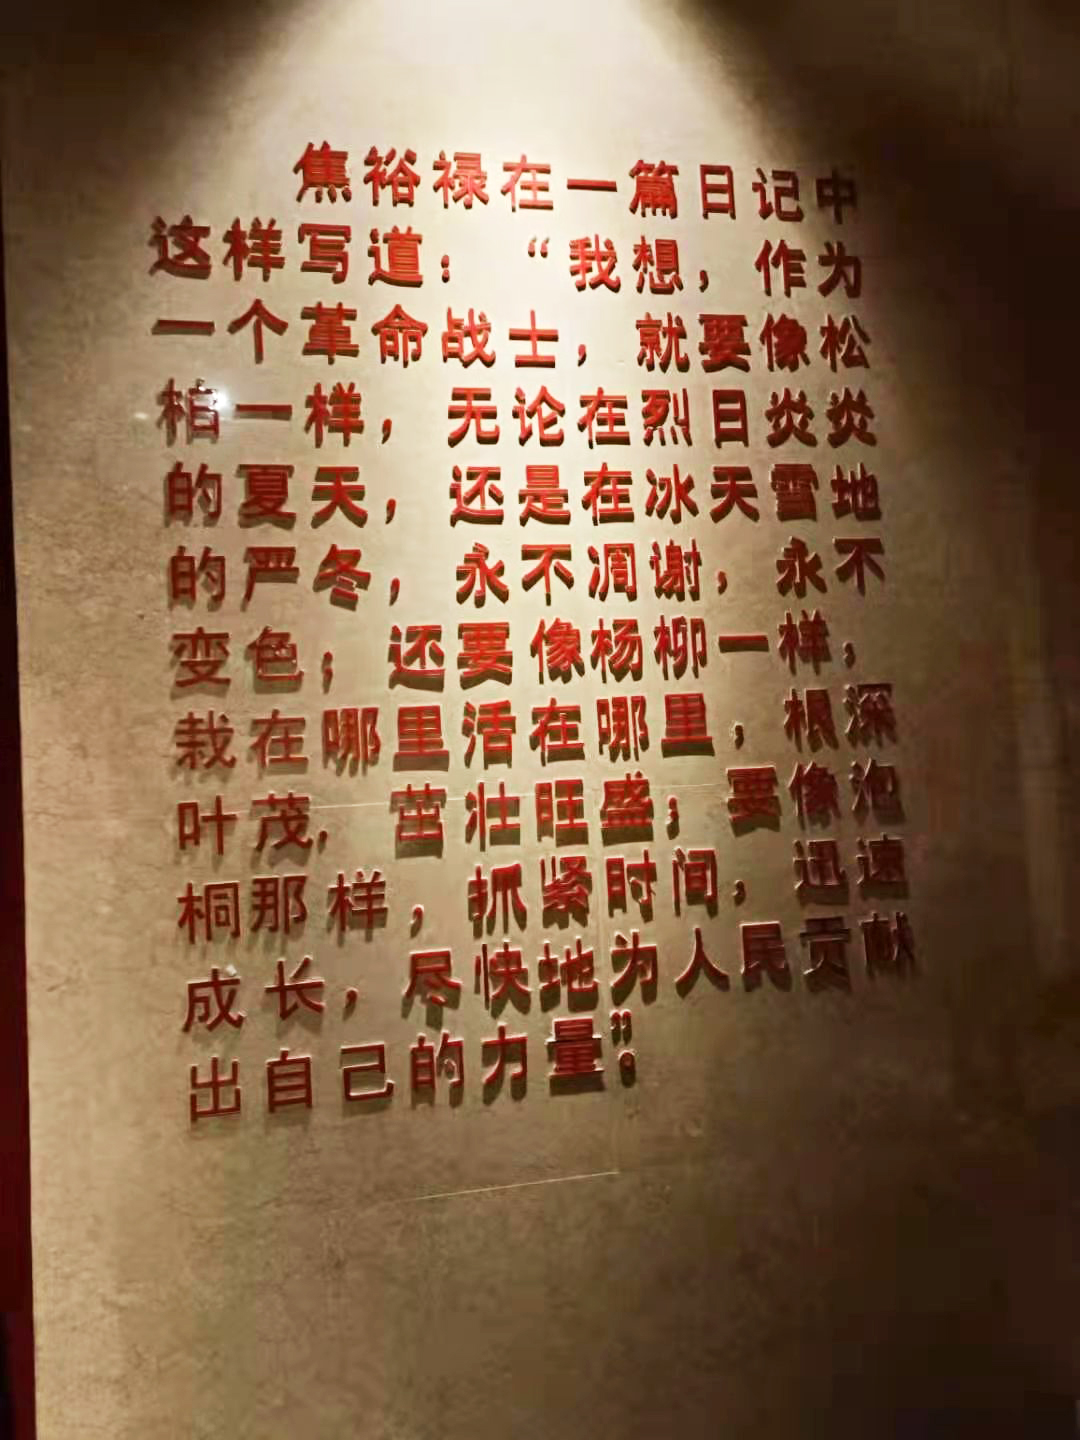 焦裕禄在一篇日记中
这样写道：“我想，作为
一个革命战士，就要像松
柏一样，无论在烈日炎炎
的夏天，还是在冰天雪地
的严冬，永不凋谢，永不
变色；还要像杨柳一样，
栽在哪里活在哪里，根深
叶茂，茁壮旺盛；要像泡
桐那样，抓紧时间，迅速
成长，尽快地为人民贡献
出自己的力量”。